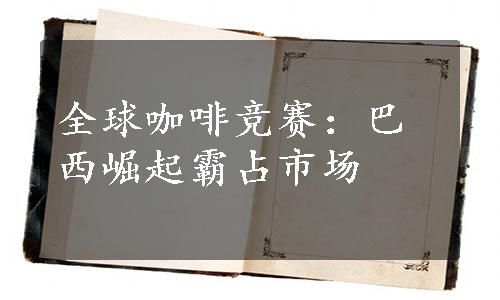 全球咖啡竞赛：巴
西崛起霸占市场